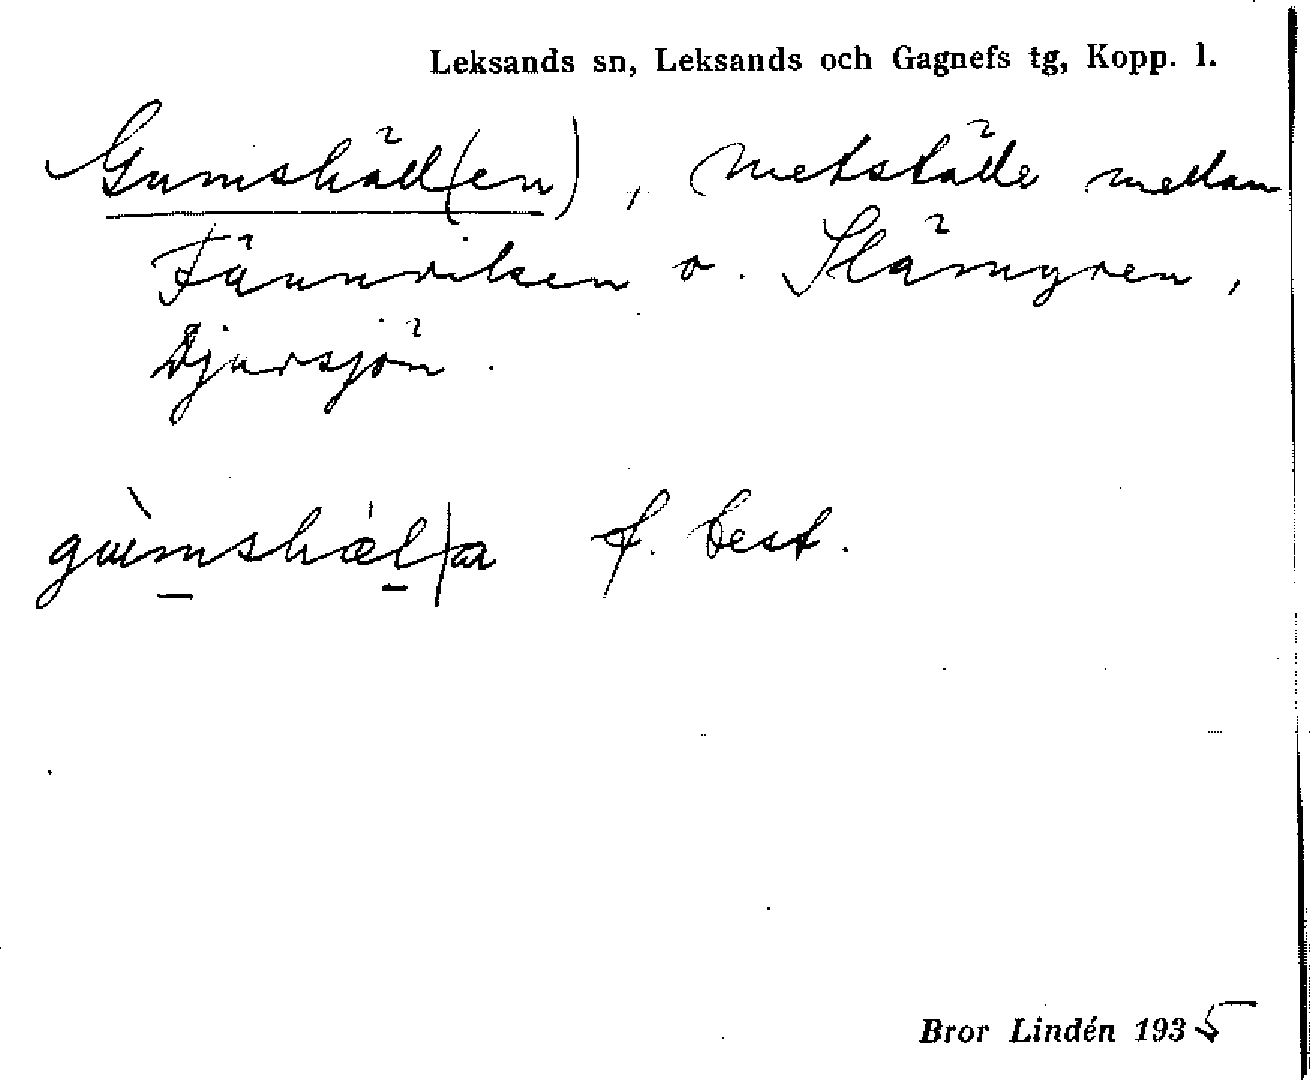 Leksands sn, Leksands och Gagnefs tg, Kopp. l.
Gumshäll(en), metställe mellan
Fännriken o. Slåmyren,
Djursjön.
gùmshæ̀l|a f. best.
Bror Lindén 1935